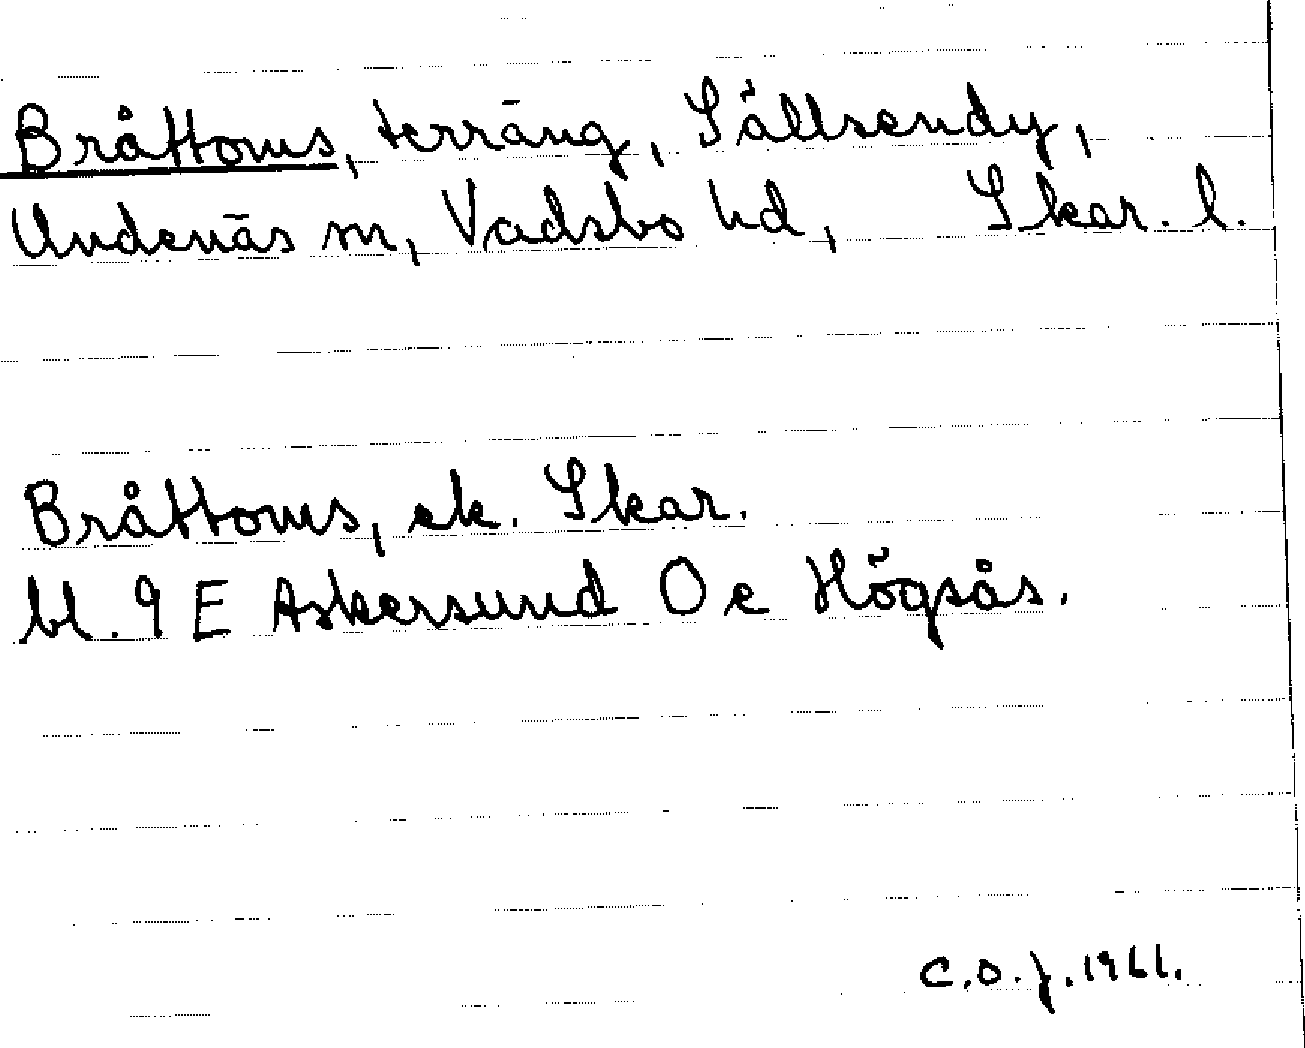 Bråttoms, terräng, Sållsendy,
Undenäs sn, Vadsbo hd, Skar. l.
Bråttoms, ek. Skar.
bl. 9 E Askersund O e Högsås.
C.O.J. 1966.